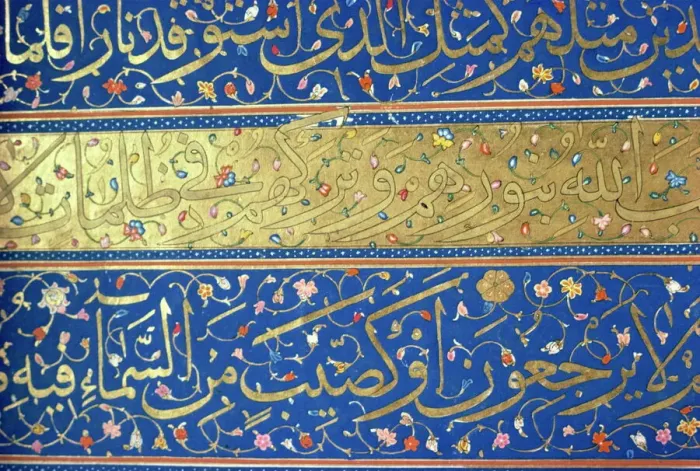 مثلهم كمثل الذى استوقد نارا فلما
الله بنورهم وتركهم فى ظلمات لا
لا يرجعون او كصيب من السَّماءِ فيه